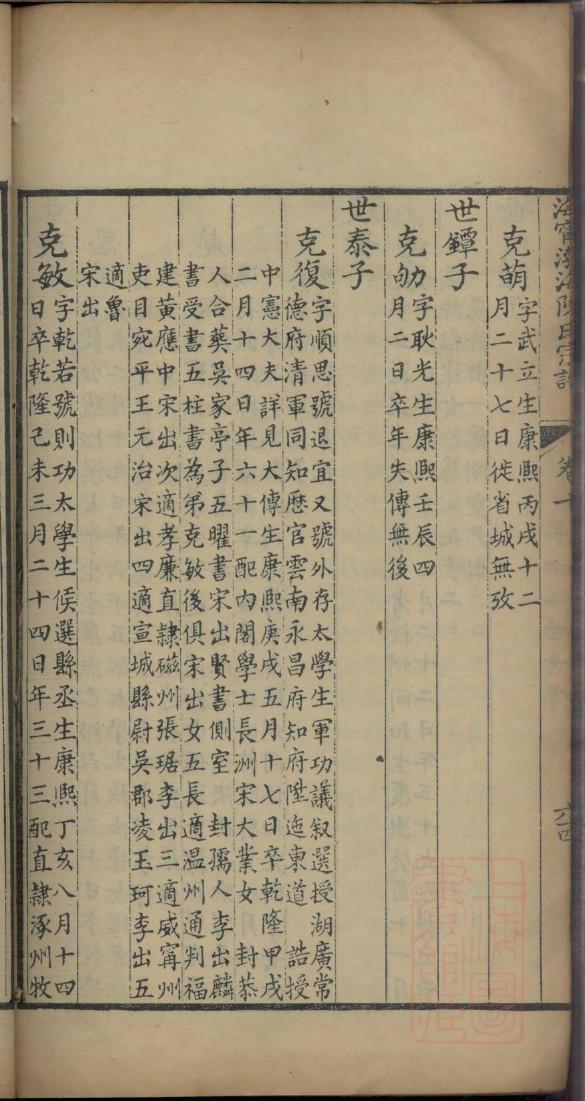 海寧渤海陳氏宗譜
卷十
六四
克萌字武立生康熙丙戌十二
月二十七日徙省城無攷
世鐔子
克劬字耿光生康熙壬辰四
月二日卒年失傳無後
世泰子
克復字順思號退宜又號外存太學生軍功議叙選授湖廣常
德府清軍同知歷官雲南永昌府知府陞迤東道 誥授
中憲大夫詳見大傳生康熙庚戌五月十七日卒乾隆甲戌
二月十四日年六十一配內閣學士長洲宋大業女 封恭
人合葬吳家亭子五曜書宋出賢書側室 封孺人李出麟
書受書五柱書為弟克敏後俱宋出女五長適溫州通判福
建黃應中宋出次適孝廉直隸磁州張琚李出三適威寗州
吏目宛平王元治宋出四適宣城縣尉吳郡凌玉珂李出五
適魯
宋出
克敏字乾若號則功太學生候選縣丞生康熙丁亥八月十四
日卒乾隆己未三月二十四日年三十三配直隸涿州牧